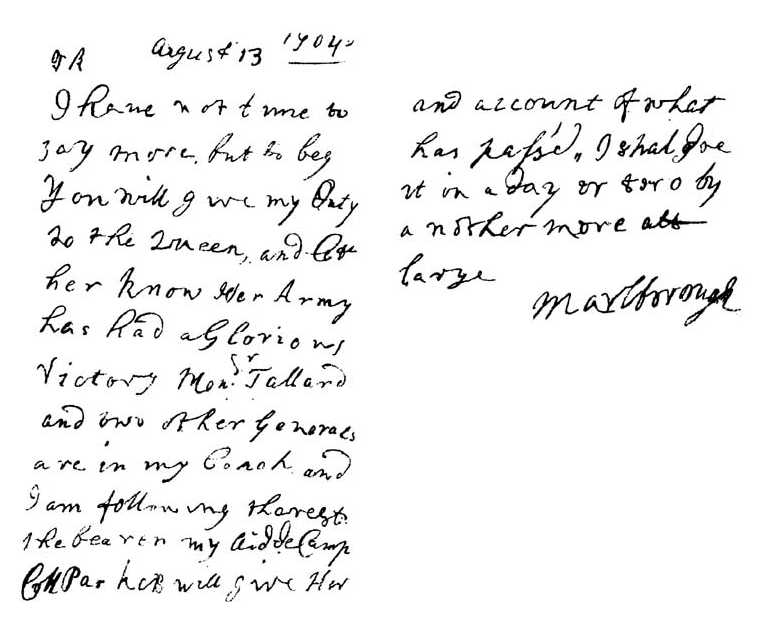 August 13 1704
I have not time to
say more, but to beg
You will give my Duty
to the Queen, and let
her know Her Army
has had a Glorious
Victory Mon.sr Tallard
and two other Generals
are in my Coach and
I am following the rest.
the bearer my Aid de Camp
Coll Parke will give Her
and account of what
has pass'd, I shal doe
it in a day or two by
another more att
large
Marlborough